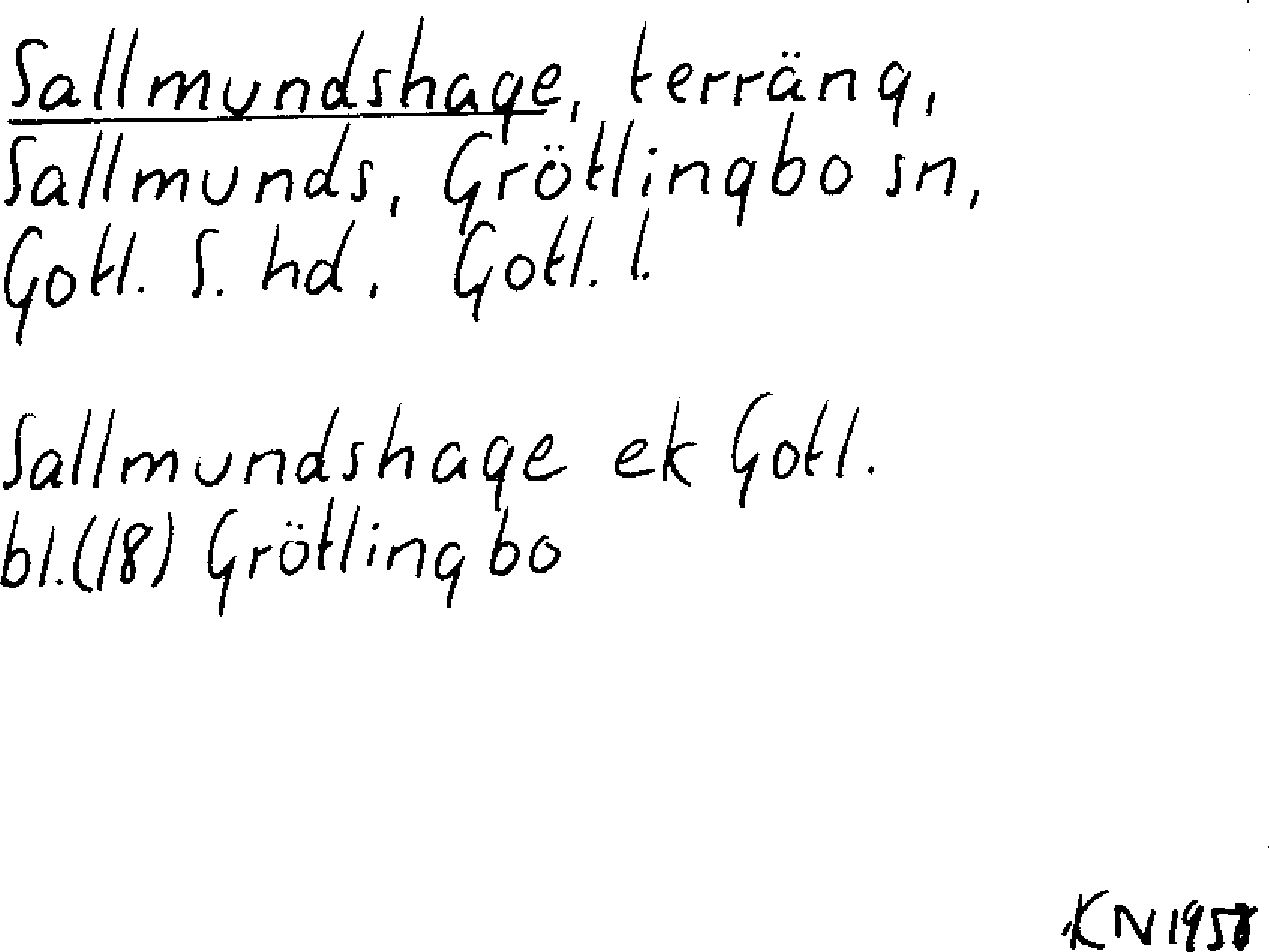 Sallmundshage, terräng,
Sallmunds, Grötlingbo sn,
Gotl. S. hd. Gotl. l.
Sallmundshage ek Gotl.
bl.(18) Grötlingbo
KN 1958